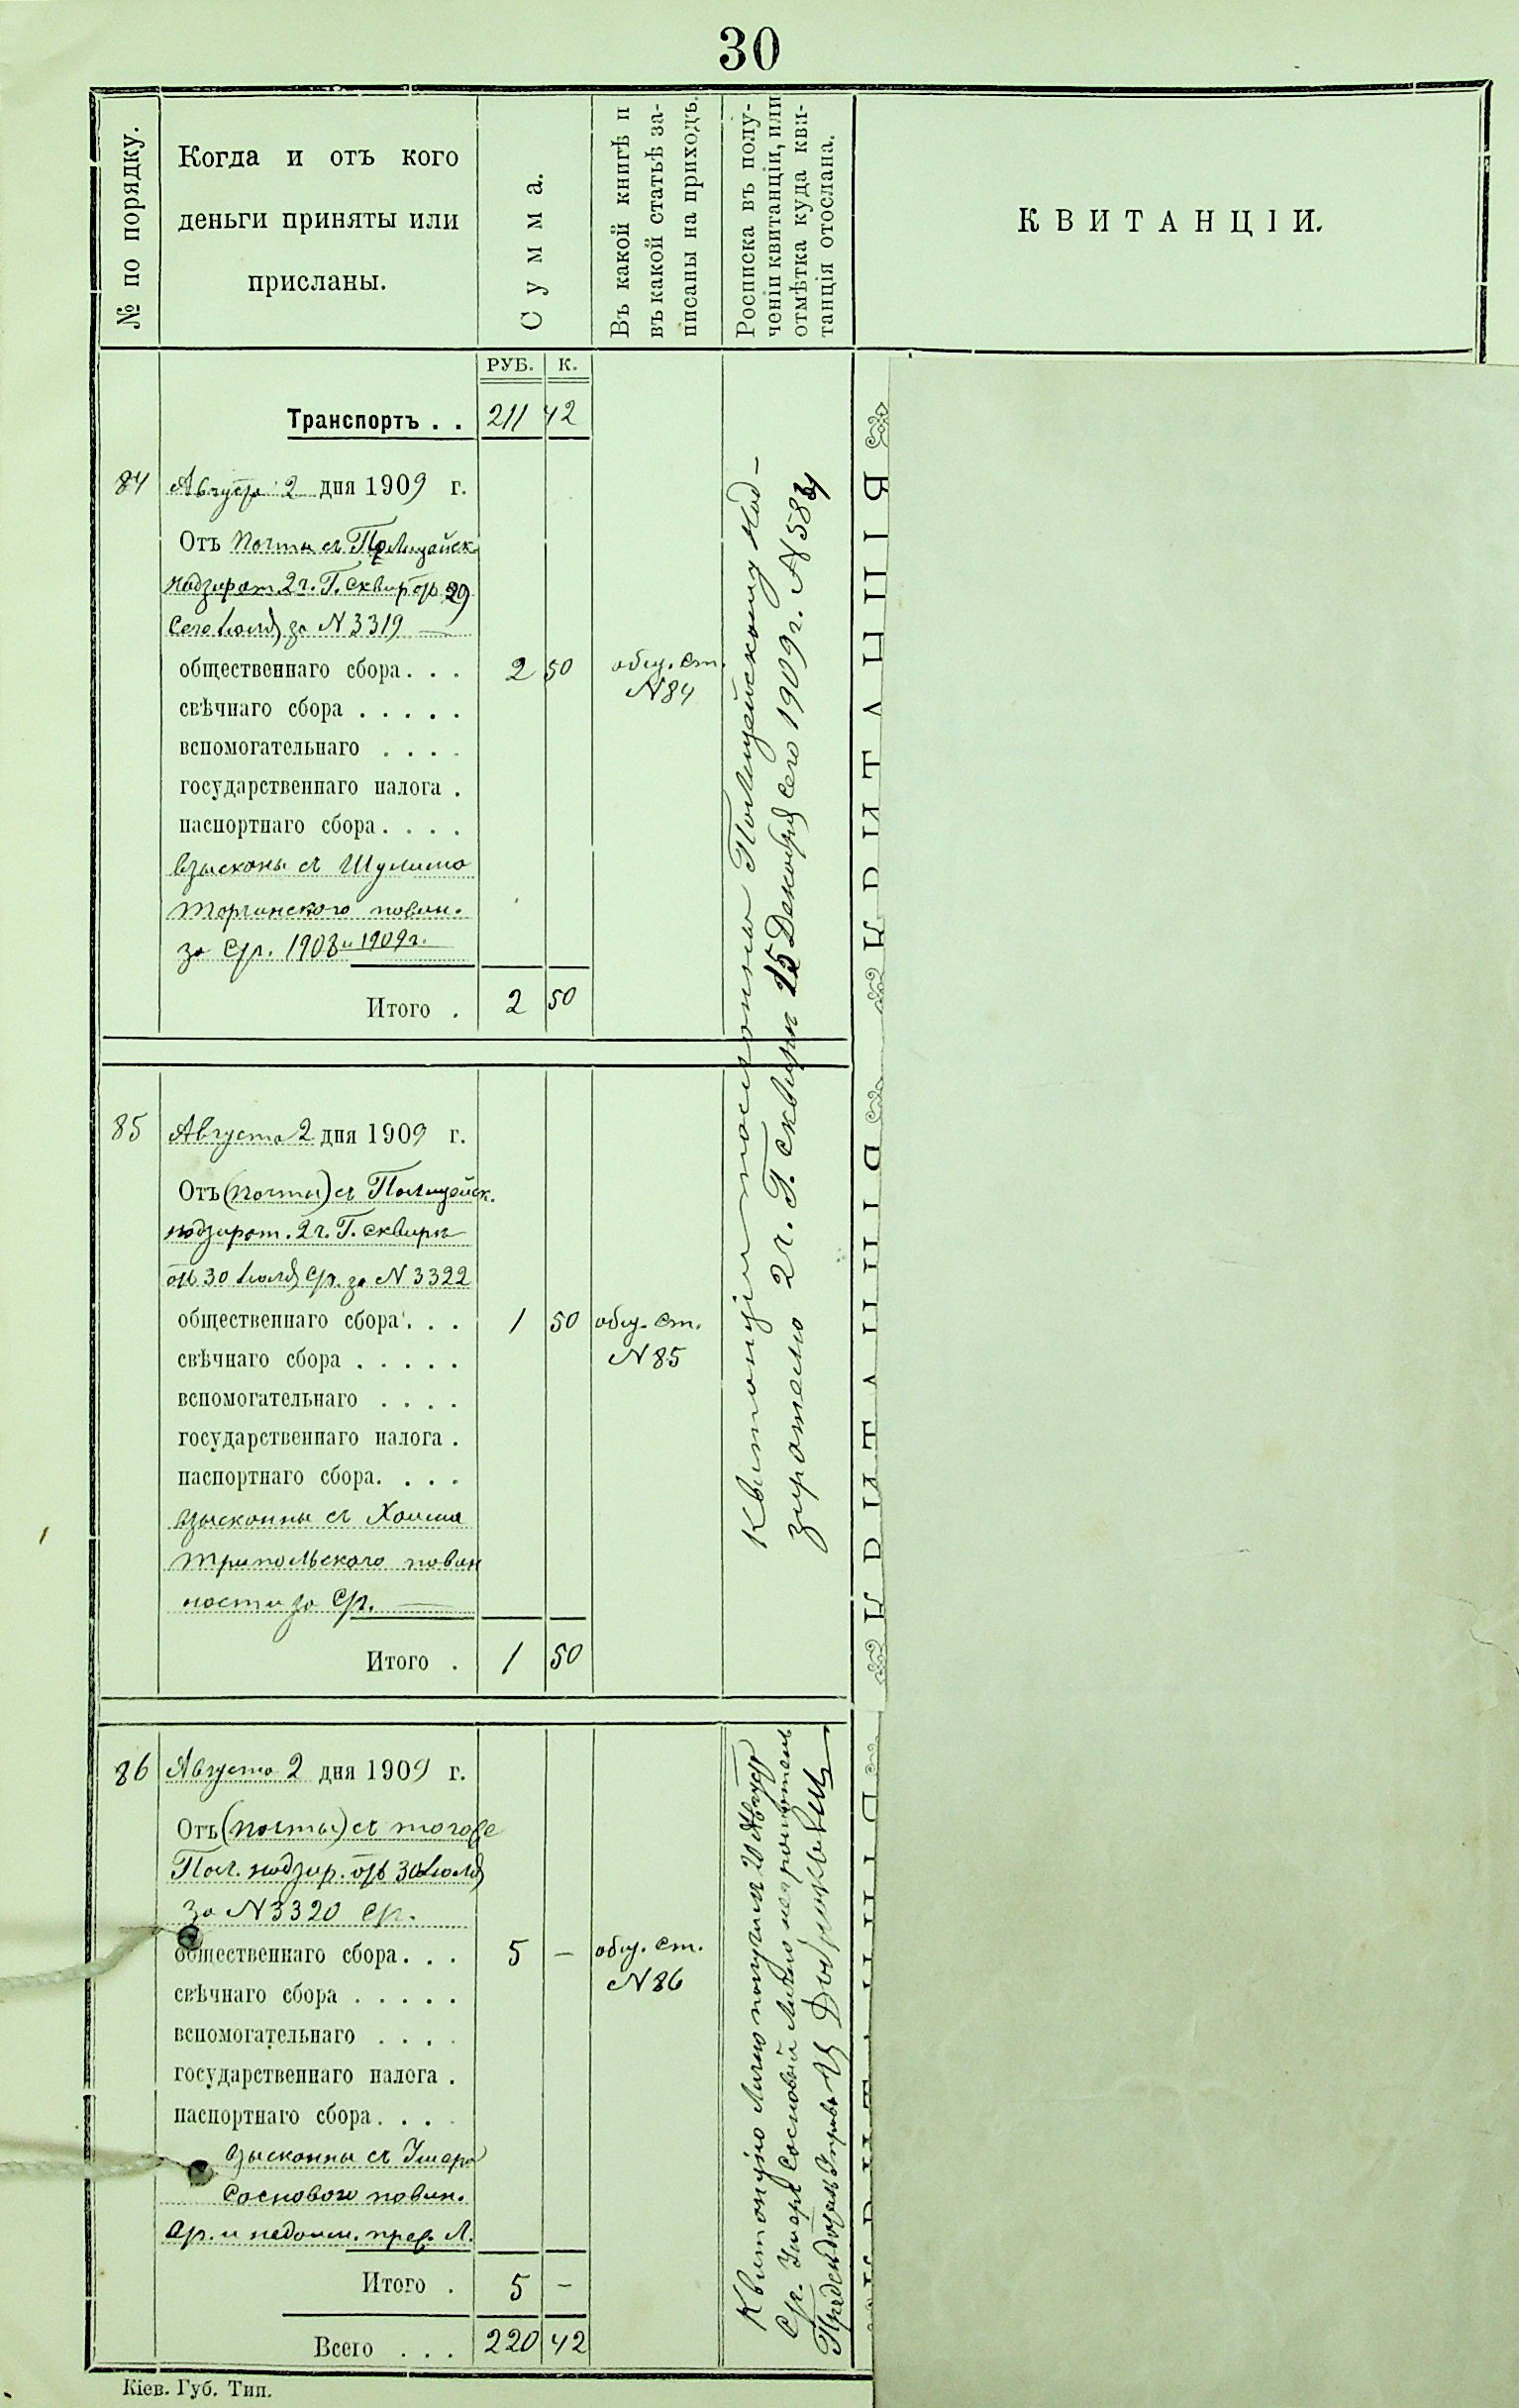 30
№ по порядку.
Когда и отъ кого
деньги приняты или
присланы.
Сумма.
Въ какой книгѣ и
въ какой статьѣ за-
писаны на приходъ.
Росписка въ полу-
ченіи квитанціи, или
отмѣтка куда кви-
танція отослана.
КВИТАНЦІИ.
РУБ. К.
Транспортъ . . 211 42
84 Августа 2 дня 1909 г.
Отъ почты съ Полицейск.
надзират. 2 ч. Г. Сквиры отъ 29
Сего Іюля за N 3319
общественнаго сбора . . . 2 50 общ. ст.
N 84
свѣчнаго сбора . . . . .
вспомогательнаго . . . .
государственнаго налога .
паспортнаго сбора . . . .
взысканы съ Шулима
повин.
за с/г. 1908 и 1909 г.
Итого . 2 50
Квитанціи посланы Полицейскому Над-
зирателю 2 ч. Г. Сквиры 15 Декабря сего 1909 г. N
85 Августа 2 дня 1909 г.
Отъ (почты) съ Полицейск.
надзират. 2 ч. Г. Сквиры
отъ 30 Іюля с/г. за N 3322
общественнаго сбора . . . 1 50 общ. ст.
N 85
свѣчнаго сбора . . . . .
вспомогательнаго . . . .
государственнаго налога .
паспортнаго сбора . . . .
взысканны съ
Трипольского повин
ности за с/г.
Итого . 1 50
86 Августа 2 дня 1909 г.
Отъ (почты) съ того же
Пол. надзир. отъ 30 Іюля
за N 3320 с/г.
общественнаго сбора . . . 5 — общ. ст.
N 86
свѣчнаго сбора . . . . .
вспомогательнаго . . . .
государственнаго налога .
паспортнаго сбора . . . .
взысканны съ
Соснового повин.
и недоим.
Итого . 5 —
Всего . . . 220 42
Квитанцію лично получилъ 20 Августа
с/г. Сосновый лично неграмотенъ
Кіев. Губ. Тип.